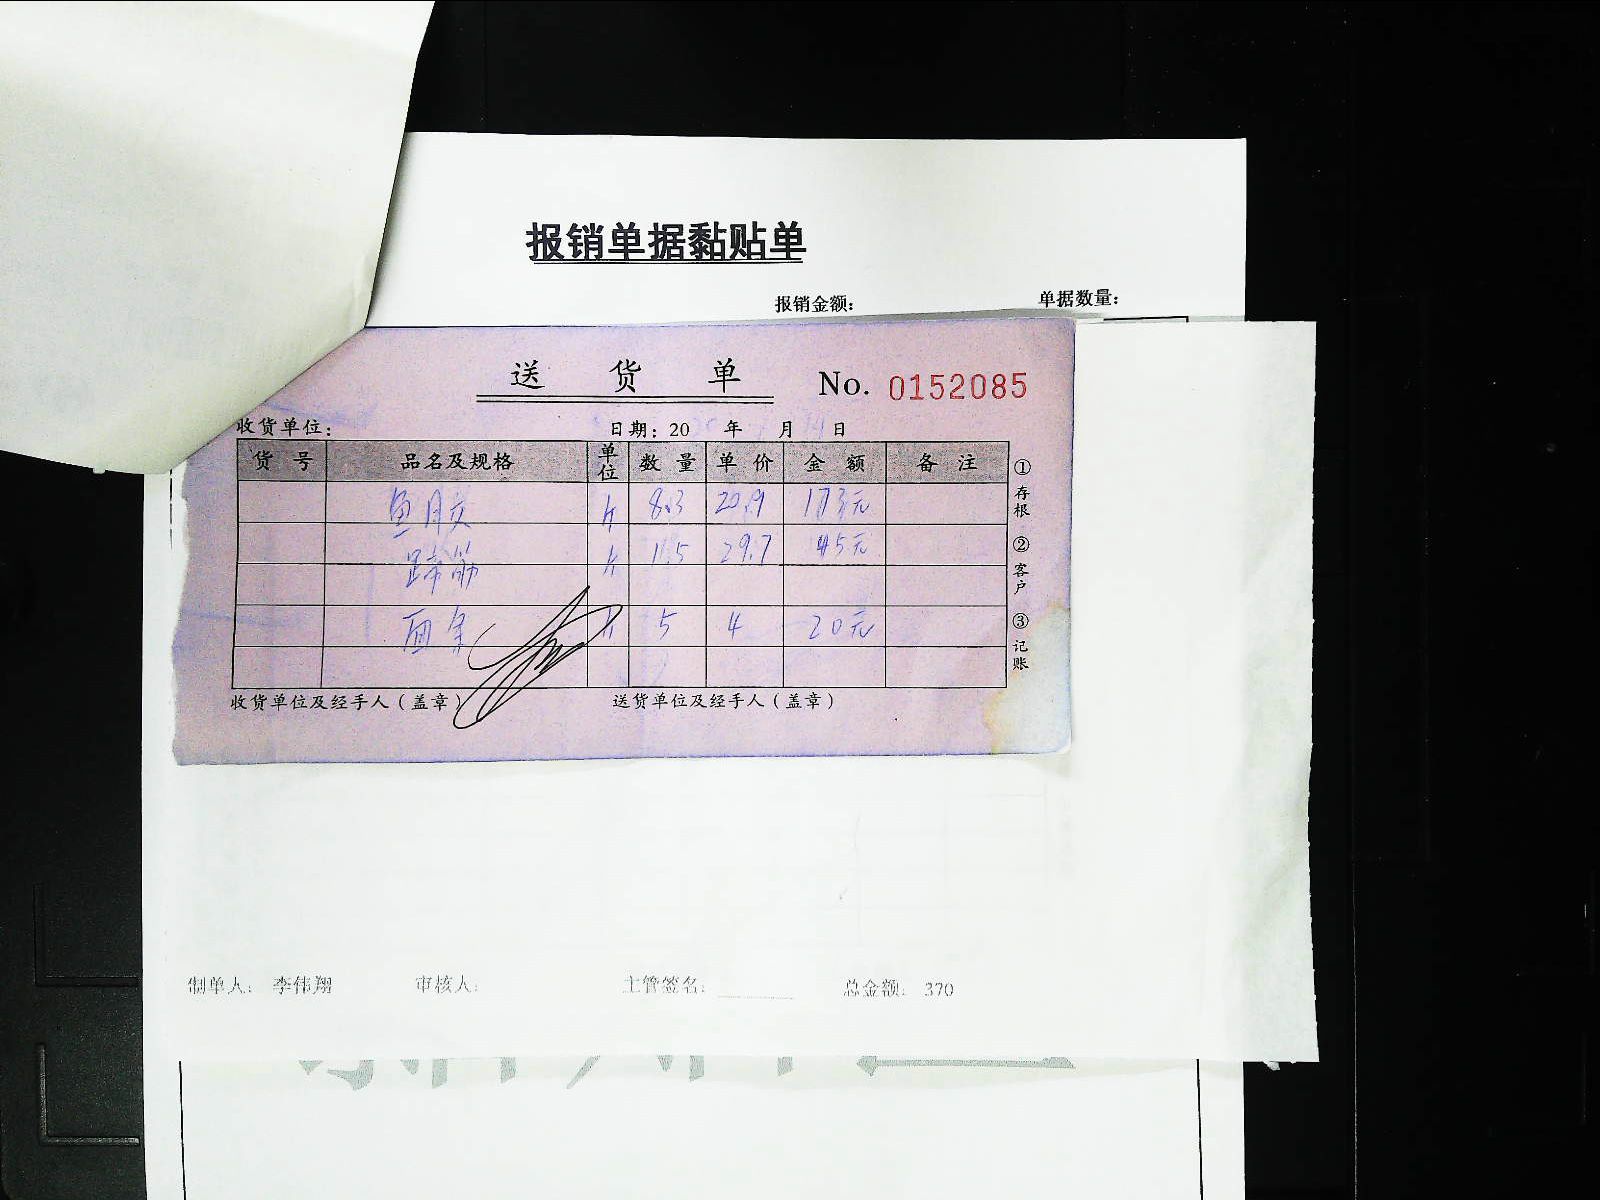 报销单据黏贴单
报销金额： 单据数量：
送货单 No. 0152085
收货单位： 日期：20 年 月 日
货号 品名及规格 单位 数量 单价 金额 备注
鱼胶 斤 8.3 20.9 173元
蹄筋 斤 1.5 29.7 45元
面条 斤 5 4 20元
①存根 ②客户 ③记账
收货单位及经手人（盖章） 送货单位及经手人（盖章）
制单人： 李伟翔 审核人： 主管签名： 总金额： 370